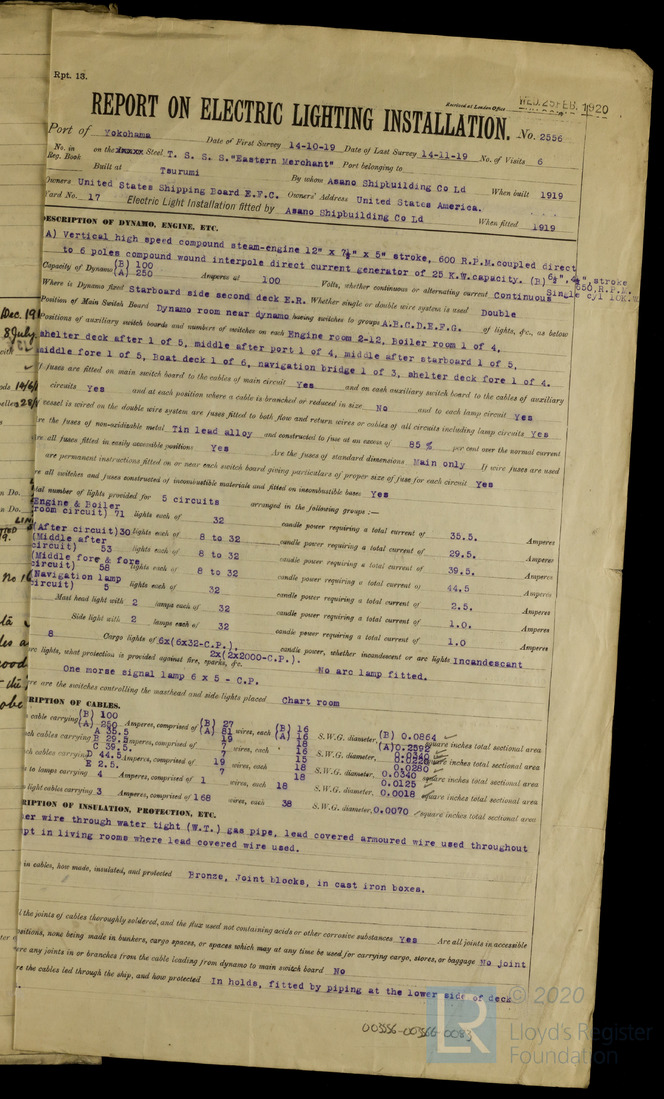 Rpt. 13.
Received at London Office WED. 25 FEB. 1920
REPORT ON ELECTRIC LIGHTING INSTALLATION. No. 2556
Port of Yokohama Date of First Survey 14-10-19 Date of Last Survey 14-11-19 No. of Visits 6
No. in Reg. Book on the Steel T. S. S. S."Eastern Merchant" Port belonging to
Built at Tsurumi By whom Asano Shipbuilding Co Ld When built 1919
Owners United States Shipping Board E.F.C. Owners' Address United States America.
Yard No. 17 Electric Light Installation fitted by Asano Shipbuilding Co Ld When fitted 1919
DESCRIPTION OF DYNAMO, ENGINE, ETC.
A) Vertical high speed compound steam-engine 12" x 7½" x 5" stroke, 600 R.P.M.coupled direct
to 6 poles compound wound interpole direct current generator of 25 K.W.capacity. (B) 6½".4½" stroke
550.R.P.M.
Single cyl 10K.W.
Capacity of Dynamo (B) 100 (A) 250 Amperes at 100 Volts, whether continuous or alternating current Continuous
Where is Dynamo fixed Starboard side second deck E.R. Whether single or double wire system is used Double
Position of Main Switch Board Dynamo room near dynamo having switches to groups A.B.C.D.E.F.G. of lights, &c., as below
Positions of auxiliary switch boards and numbers of switches on each Engine room 2-12, Boiler room 1 of 4,
shelter deck after 1 of 5, middle after port 1 of 4, middle after starboard 1 of 5,
middle fore 1 of 5, Boat deck 1 of 6, navigation bridge 1 of 3, shelter deck fore 1 of 4.
If fuses are fitted on main switch board to the cables of main circuit Yes and on each auxiliary switch board to the cables of auxiliary
circuits Yes and at each position where a cable is branched or reduced in size No and to each lamp circuit Yes
vessel is wired on the double wire system are fuses fitted to both flow and return wires or cables of all circuits including lamp circuits Yes
Are the fuses of non-oxidizable metal Tin lead alloy and constructed to fuse at an excess of 85 % per cent over the normal current
Are all fuses fitted in easily accessible positions Yes Are the fuses of standard dimensions Main only If wire fuses are used
are permanent instructions fitted on or near each switch board giving particulars of proper size of fuse for each circuit Yes
Are all switches and fuses constructed of incombustible materials and fitted on incombustible bases Yes
Total number of lights provided for 5 circuits arranged in the following groups :—
Engine & Boiler
room circuit) 71 lights each of 32 candle power requiring a total current of 35.5. Amperes
(After circuit)30 lights each of 8 to 32 candle power requiring a total current of 29.5. Amperes
(Middle after
circuit) 53 lights each of 8 to 32 candle power requiring a total current of 39.5. Amperes
(Middle fore & fore
circuit) 58 lights each of 8 to 32 candle power requiring a total current of 44.5 Amperes
(Navigation lamp
circuit) 5 lights each of 32 candle power requiring a total current of 2.5. Amperes
Mast head light with 2 lamps each of 32 candle power requiring a total current of 1.0. Amperes
Side light with 2 lamps each of 32 candle power requiring a total current of 1.0 Amperes
8 Cargo lights of 6x(6x32-C.P.). 2x(2x2000-C.P.). candle power, whether incandescent or arc lights Incandescant
arc lights, what protection is provided against fire, sparks, &c. No arc lamp fitted.
One morse signal lamp 6 x 5 - C.P.
Where are the switches controlling the masthead and side lights placed Chart room
DESCRIPTION OF CABLES.
cable carrying (B) 100 (A) 250 Amperes, comprised of (B) 27 (A) 81 wires, each (B) 16 (A) 16 S.W.G. diameter, (B) 0.0864 (A)0.2592 square inches total sectional area
A 35.5 19 18 0.0340
B 29.5 7 16 0.0228
C 39.5. 7 15 0.0280
D 44.5 19 18 0.0340
E 2.5. 7 18 0.0125
to lamps carrying 4 Amperes, comprised of 1 wires, each 18 S.W.G. diameter, 0.0018 square inches total sectional area
light cables carrying 3 Amperes, comprised of 168 wires, each 38 S.W.G. diameter, 0.0070 square inches total sectional area
DESCRIPTION OF INSULATION, PROTECTION, ETC.
wire through water tight (W.T.) gas pipe, lead covered armoured wire used throughout
pt in living rooms where lead covered wire used.
in cables, how made, insulated, and protected Bronze, Joint blocks, in cast iron boxes.
the joints of cables thoroughly soldered, and the flux used not containing acids or other corrosive substances Yes Are all joints in accessible
positions, none being made in bunkers, cargo spaces, or spaces which may at any time be used for carrying cargo, stores, or baggage No joint
ere any joints in or branches from the cable leading from dynamo to main switch board No
re the cables led through the ship, and how protected In holds, fitted by piping at the lower side of deck
003556-003566-0083
© 2020
LR
Lloyd's Register
Foundation